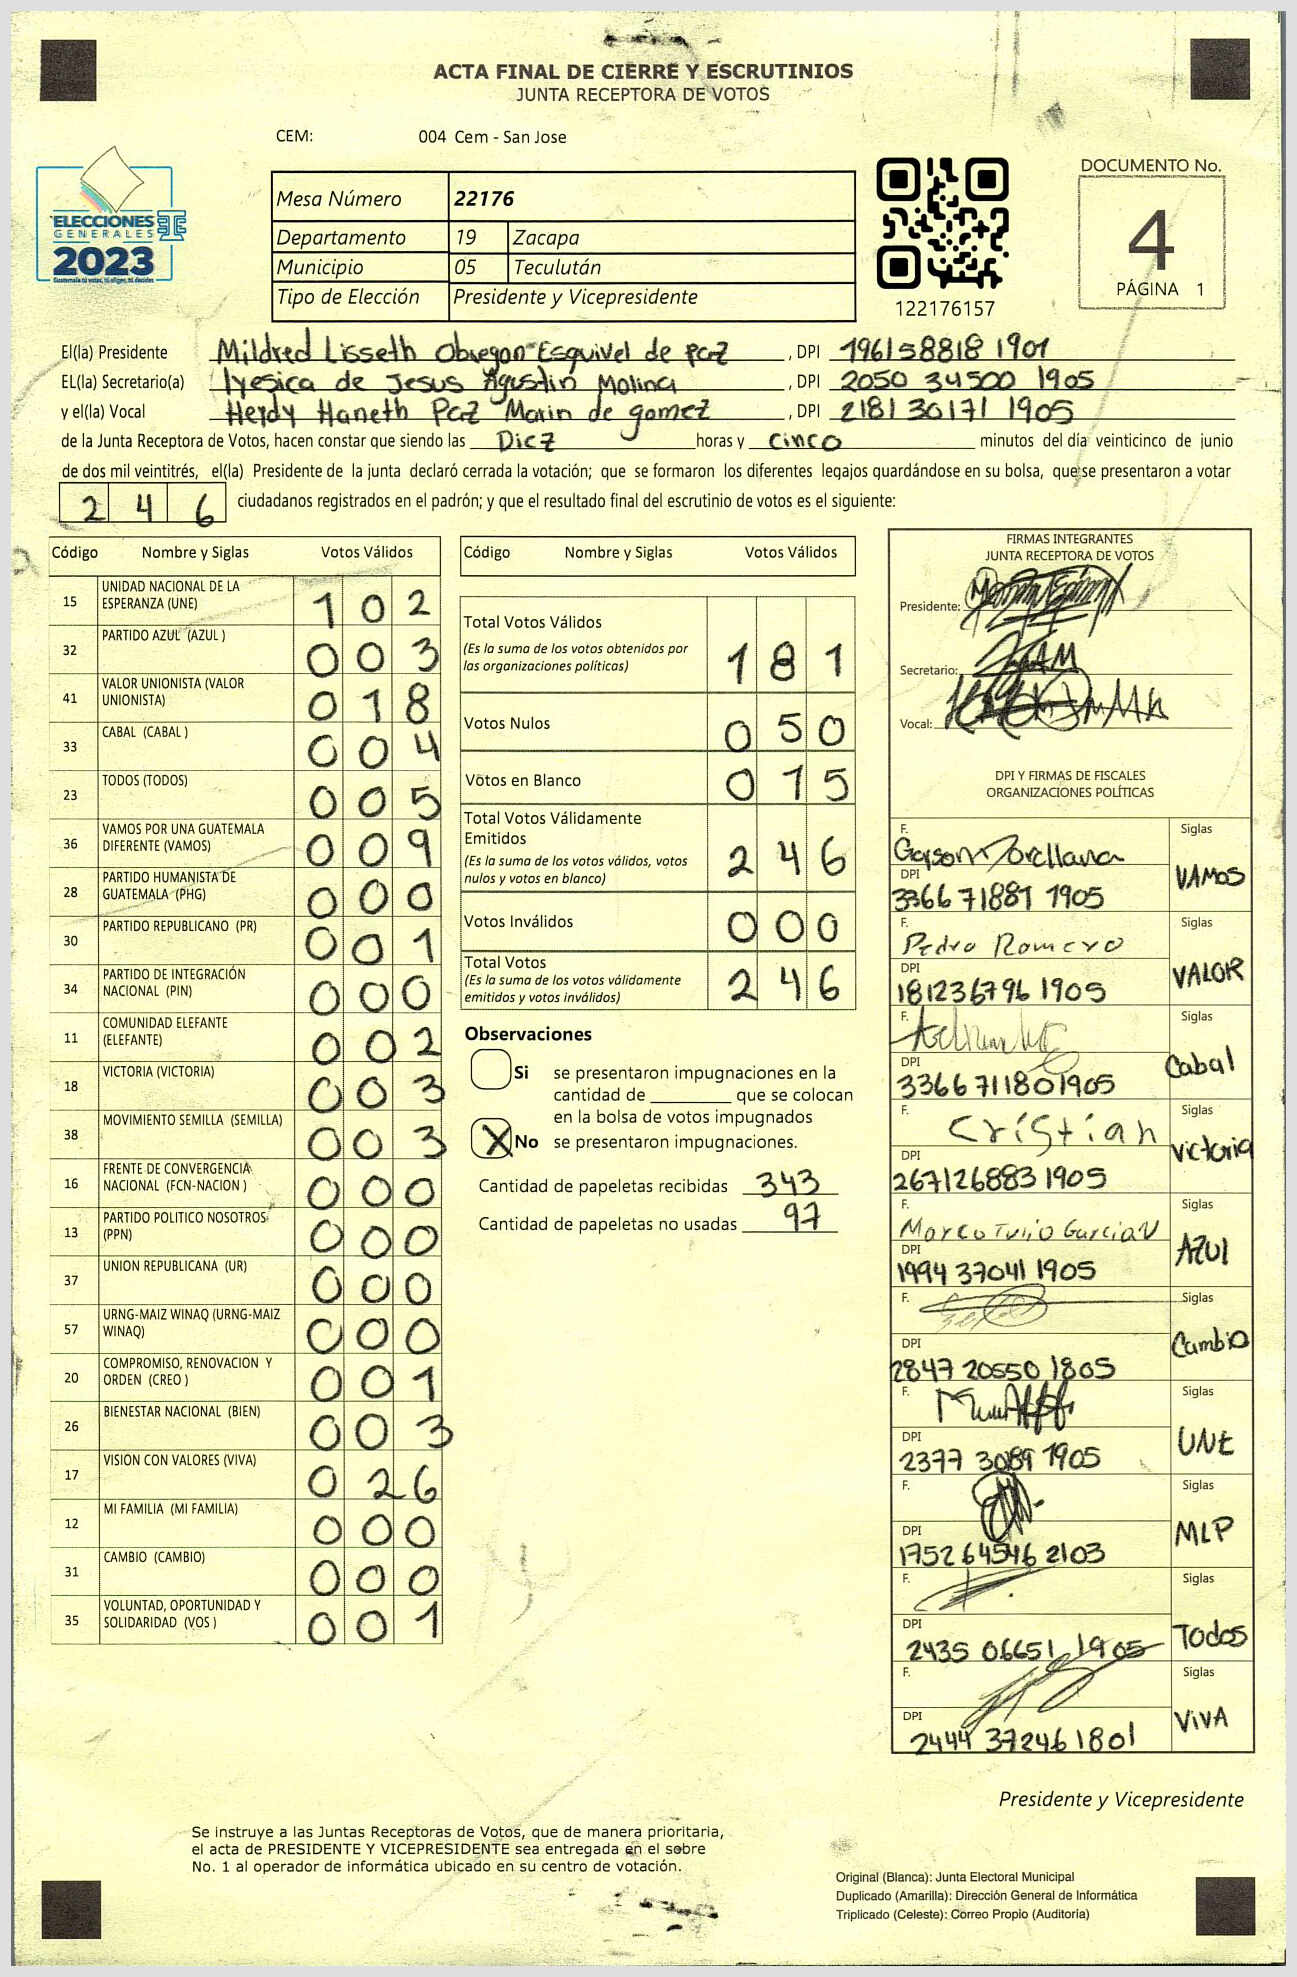 ACTA FINAL DE CIERRE Y ESCRUTINIOS
JUNTA RECEPTORA DE VOTOS
CEM: 004 Cem - San Jose
ELECCIONES
GENERALES
2023
Guatemala tú votas, tú eliges, tú decides
Mesa Número 22176
Departamento 19 Zacapa
Municipio 05 Teculután
Tipo de Elección Presidente y Vicepresidente
122176157
DOCUMENTO No.
4
PÁGINA 1
El(la) Presidente Mildred Lisseth Obregon Esquivel de paz , DPI 196158818 1901
EL(la) Secretario(a) Iyesica de Jesus Agustin Molina , DPI 2050 34500 1905
y el(la) Vocal Heidy Haneth Paz Marin de gomez , DPI 2181 30171 1905
de la Junta Receptora de Votos, hacen constar que siendo las Diez horas y cinco minutos del día veinticinco de junio
de dos mil veintitrés, el(la) Presidente de la junta declaró cerrada la votación; que se formaron los diferentes legajos guardándose en su bolsa, que se presentaron a votar
2 4 6 ciudadanos registrados en el padrón; y que el resultado final del escrutinio de votos es el siguiente:
Código Nombre y Siglas Votos Válidos
15 UNIDAD NACIONAL DE LA ESPERANZA (UNE) 1 0 2
32 PARTIDO AZUL (AZUL ) 0 0 3
41 VALOR UNIONISTA (VALOR UNIONISTA) 0 1 8
33 CABAL (CABAL ) 0 0 4
23 TODOS (TODOS) 0 0 5
36 VAMOS POR UNA GUATEMALA DIFERENTE (VAMOS) 0 0 9
28 PARTIDO HUMANISTA DE GUATEMALA (PHG) 0 0 0
30 PARTIDO REPUBLICANO (PR) 0 0 1
34 PARTIDO DE INTEGRACIÓN NACIONAL (PIN) 0 0 0
11 COMUNIDAD ELEFANTE (ELEFANTE) 0 0 2
18 VICTORIA (VICTORIA) 0 0 3
38 MOVIMIENTO SEMILLA (SEMILLA) 0 0 3
16 FRENTE DE CONVERGENCIA NACIONAL (FCN-NACION ) 0 0 0
13 PARTIDO POLITICO NOSOTROS (PPN) 0 0 0
37 UNION REPUBLICANA (UR) 0 0 0
57 URNG-MAIZ WINAQ (URNG-MAIZ WINAQ) 0 0 0
20 COMPROMISO, RENOVACION Y ORDEN (CREO ) 0 0 1
26 BIENESTAR NACIONAL (BIEN) 0 0 3
17 VISION CON VALORES (VIVA) 0 2 6
12 MI FAMILIA (MI FAMILIA) 0 0 0
31 CAMBIO (CAMBIO) 0 0 0
35 VOLUNTAD, OPORTUNIDAD Y SOLIDARIDAD (VOS ) 0 0 1
Código Nombre y Siglas Votos Válidos
Total Votos Válidos
(Es la suma de los votos obtenidos por las organizaciones políticas) 1 8 1
Votos Nulos 0 5 0
Votos en Blanco 0 1 5
Total Votos Válidamente Emitidos
(Es la suma de los votos válidos, votos nulos y votos en blanco) 2 4 6
Votos Inválidos 0 0 0
Total Votos
(Es la suma de los votos válidamente emitidos y votos inválidos) 2 4 6
Observaciones
Si se presentaron impugnaciones en la
cantidad de ________ que se colocan
en la bolsa de votos impugnados
X No se presentaron impugnaciones.
Cantidad de papeletas recibidas 343
Cantidad de papeletas no usadas 97
FIRMAS INTEGRANTES
JUNTA RECEPTORA DE VOTOS
Presidente:
Secretario:
Vocal:
DPI Y FIRMAS DE FISCALES
ORGANIZACIONES POLÍTICAS
F. Gerson Orellana Siglas
DPI 3366 71881 1905 VAMOS
F. Pedro Romero Siglas
DPI 181236796 1905 VALOR
F. Siglas
DPI 3366 711801905 Cabal
F. Cristian Siglas
DPI 267126883 1905 victoria
F. Marco Tulio Garcia V Siglas
DPI 1994 37041 1905 AZUl
F. Siglas
DPI 2847 20550 1805 Cambio
F. Siglas
DPI 2377 3089 1905 UNE
F. Siglas
DPI 1752 64546 2103 MLP
F. Siglas
DPI 2435 06651 1905 Todos
F. Siglas
DPI 2444 37246 1801 ViVA
Presidente y Vicepresidente
Se instruye a las Juntas Receptoras de Votos, que de manera prioritaria,
el acta de PRESIDENTE Y VICEPRESIDENTE sea entregada en el sobre
No. 1 al operador de informática ubicado en su centro de votación.
Original (Blanca): Junta Electoral Municipal
Duplicado (Amarilla): Dirección General de Informática
Triplicado (Celeste): Correo Propio (Auditoría)